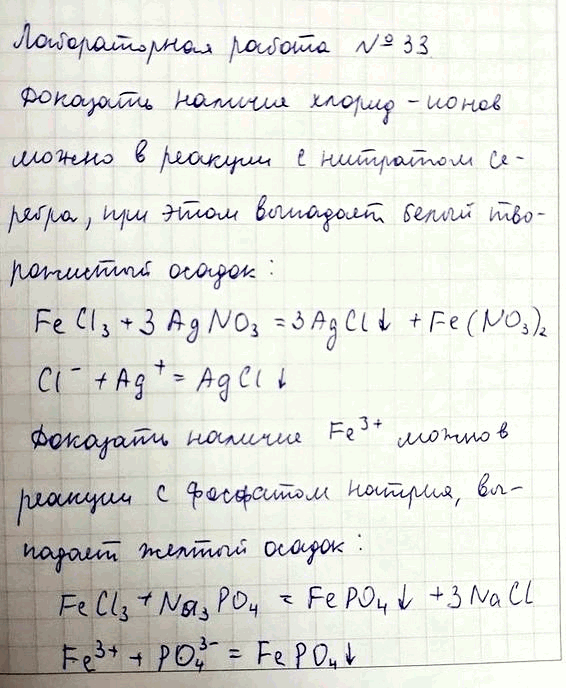 Лабораторная работа №33.
Доказать наличие хлорид-ионов
можно в реакции с нитратом се-
ребра, при этом выпадает белый тво-
рожистый осадок:
FeCl₃ + 3AgNO₃ = 3AgCl↓ + Fe(NO₃)₂
Cl⁻ + Ag⁺ = AgCl↓
Доказать наличие Fe³⁺ можно в
реакции с фосфатом натрия, вы-
падает желтый осадок:
FeCl₃ + Na₃PO₄ = FePO₄↓ + 3NaCl
Fe³⁺ + PO₄³⁻ = FePO₄↓